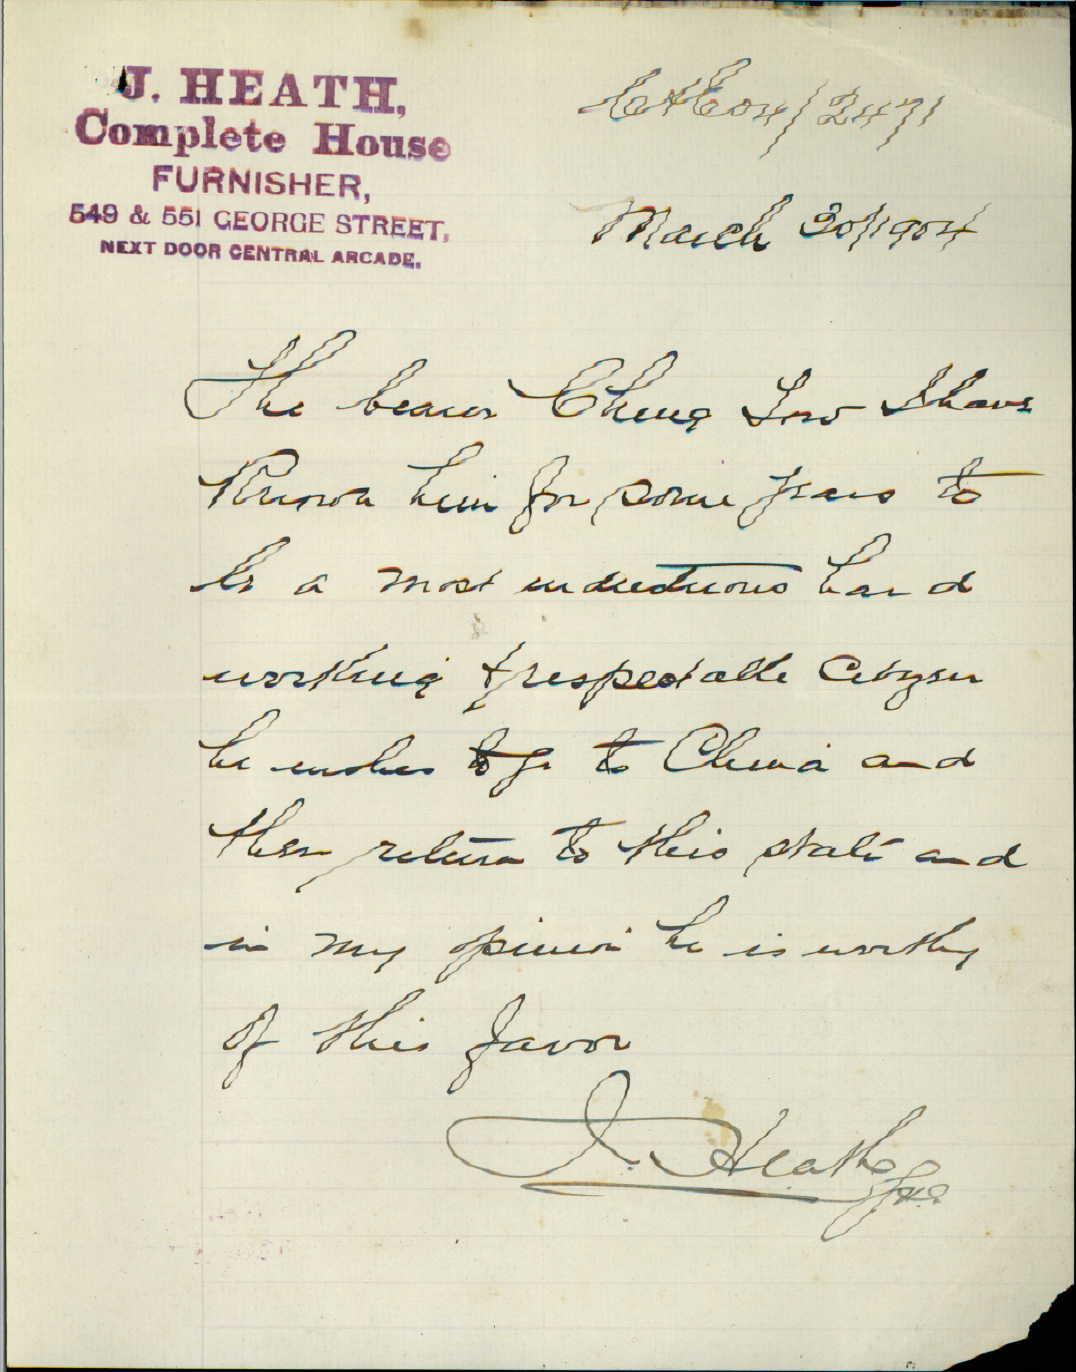 J. HEATH,
Complete House
FURNISHER,
549 & 551 GEORGE STREET,
NEXT DOOR CENTRAL ARCADE.
C&E04/2471
March 30/1904
The bearer Cheng Low I have
Known him for some years to
be a most industrious hard
working & respectable Citizen
he wishes to go to China and
then return to this state and
in my opinion he is worthy
of this favor
J. Heath